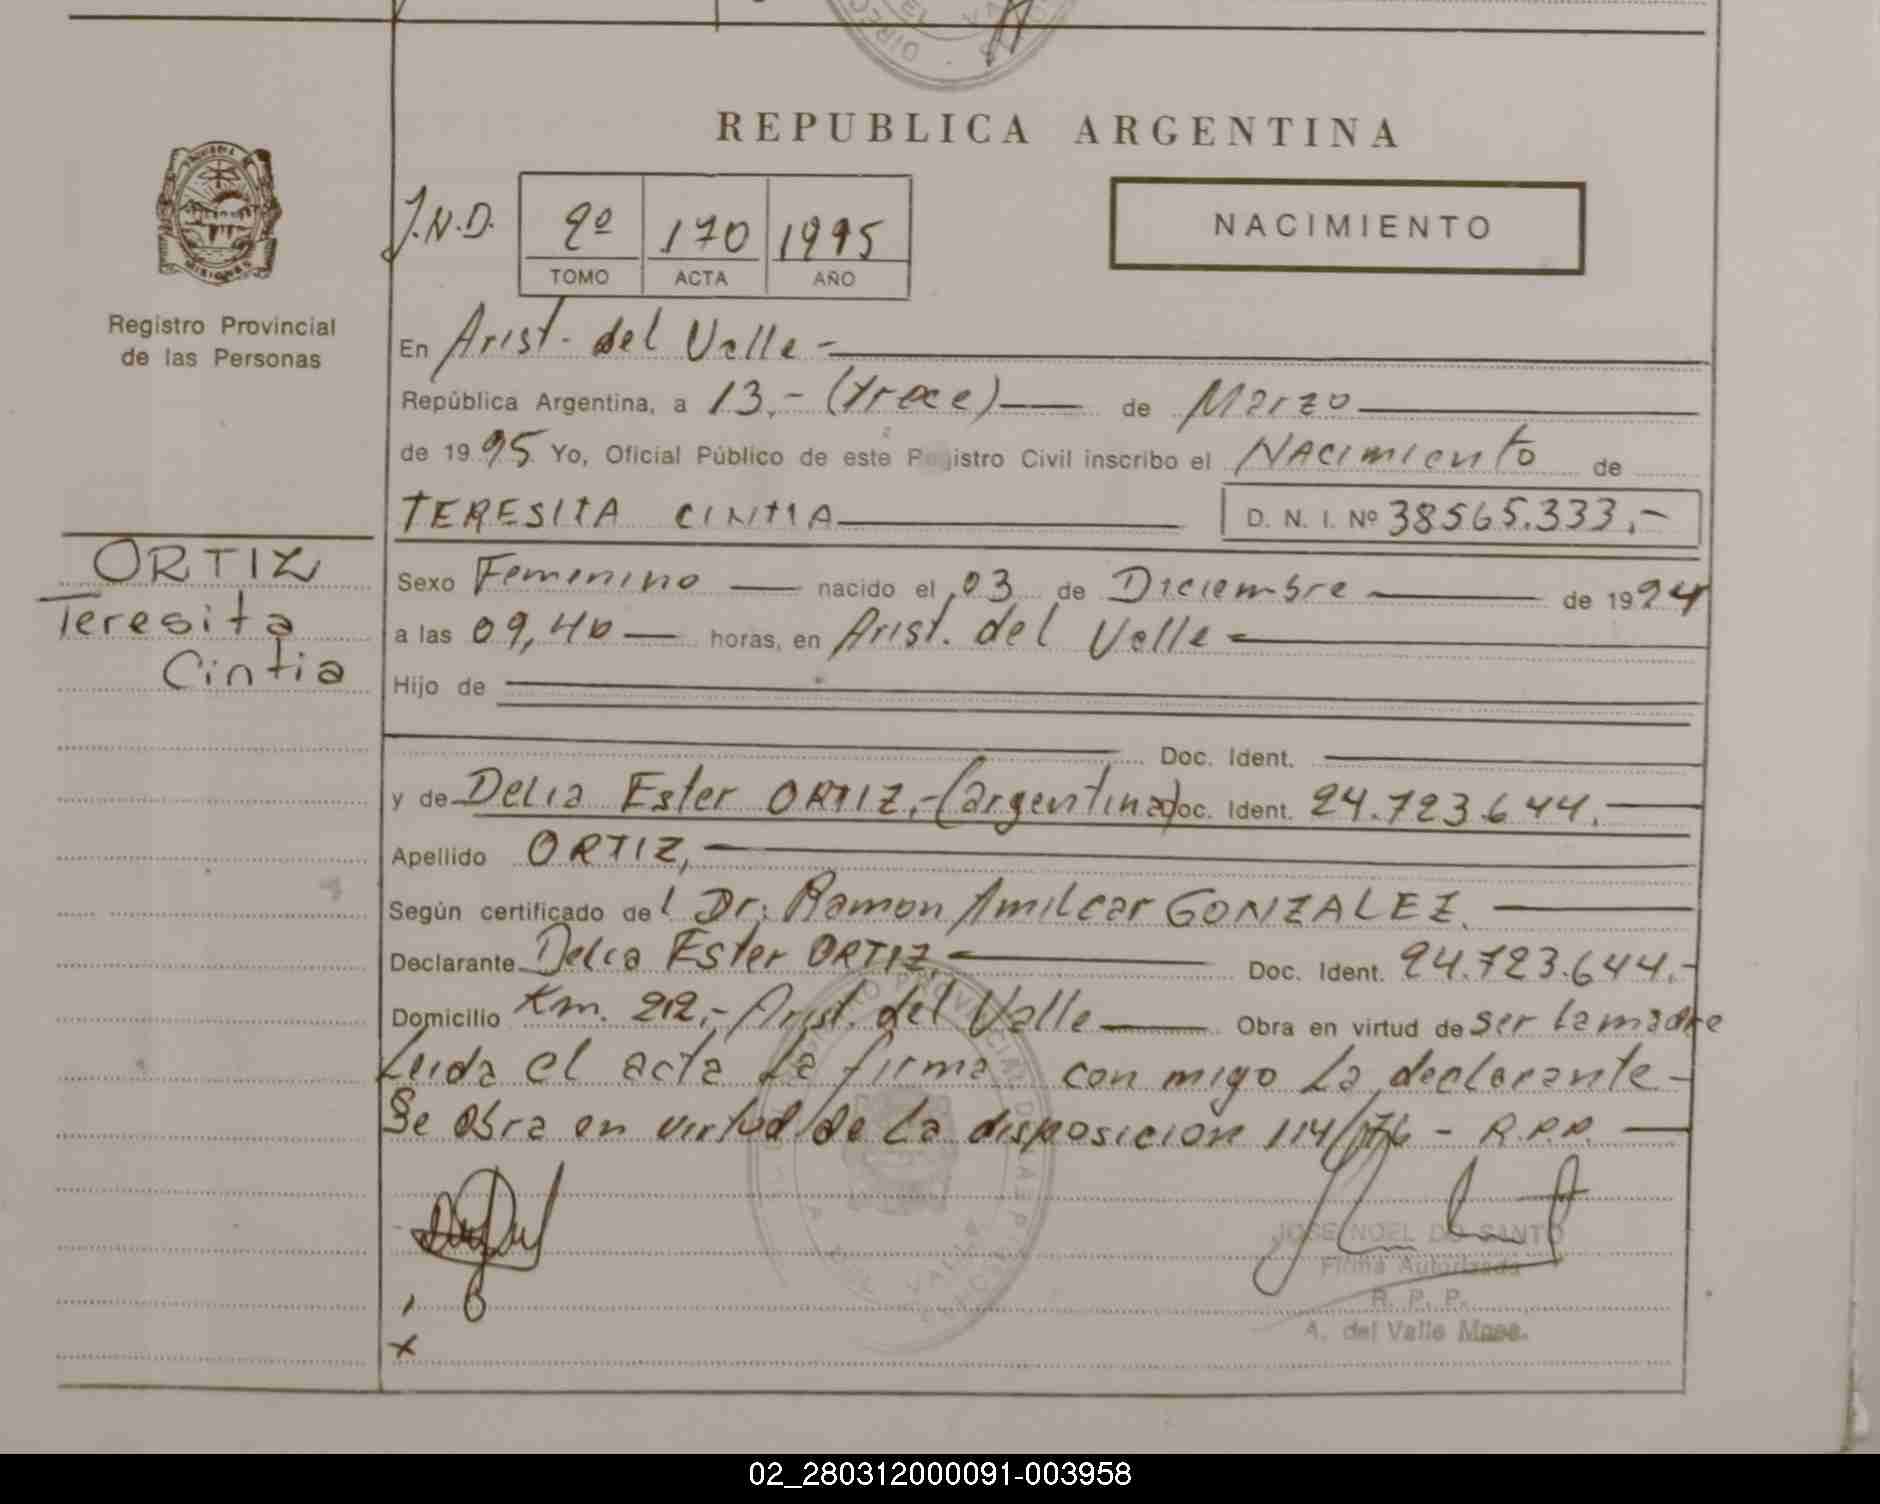 REPUBLICA ARGENTINA
PROVINCIA DE
MISIONES
Registro Provincial
de las Personas
J.N.D.
2º 170 1995
TOMO ACTA AÑO
NACIMIENTO
En Arist. del Valle -
República Argentina, a 13.- (trece) de Marzo
de 1995 Yo, Oficial Público de este Registro Civil inscribo el Nacimiento de
TERESITA CINTIA D. N. I. Nº 38565.333.-
ORTIZ
Teresita
Cintia
Sexo Femenino nacido el 03 de Diciembre de 1994
a las 09,40 horas, en Arist. del Valle
Hijo de
Doc. Ident.
y de Delia Ester ORTIZ.-(argentina) Doc. Ident. 24.723.644.
Apellido ORTIZ,
Según certificado del Dr: Ramon Amilcar GONZALEZ.
Declarante Delia Ester ORTIZ. Doc. Ident. 24.723.644.-
Domicilio Km. 212,- Arist. del Valle Obra en virtud de ser La madre
Leida el acta La firma con migo La declarante -
Se obra en virtud de La disposicion 114/76 - R.P.P.
JOSE NOEL DO SANTO
Firma Autorizada
R. P. P.
A. del Valle Mnes.
02_280312000091-003958